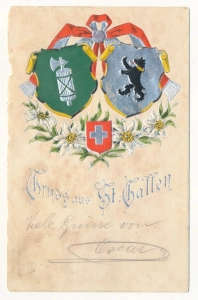 Gruss aus St. Gallen
Viele Grüsse von
Oscar